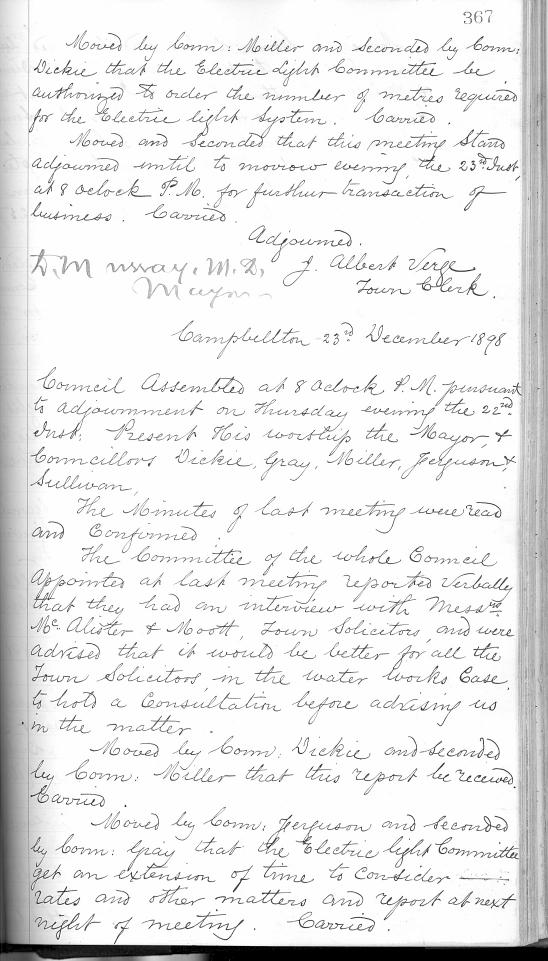 367
Moved by Conn: Miller and Seconded by Conn:
Dickie that the Electric Light Committee be
authorized to order the number of metres required
for the Electric light System. Carried.
Moved and Seconded that this meeting Stand
adjourned until to morrow evening, the 23rd Inst,
at 8 oclock P.M. for further transaction of
business. Carried.
Adjourned.
D. Murray, M.D. J. Albert Verge
Mayor Town Clerk.
Campbellton 23rd December 1898
Council Assembled at 8 oclock P.M. pursuant
to adjournment on Thursday evening the 22nd
Inst. Present His worship the Mayor, &
Councillors Dickie, Gray, Miller, Ferguson &
Sullivan,
The Minutes of last meeting were read
and Confirmed.
The Committee of the whole Council
Appointed at last meeting reported Verbally
that they had an interview with Messrs
Mc.Alister & Mott, Town Solicitors, and were
advised that it would be better for all the
Town Solicitors, in the water works Case,
to hold a Consultation before advising us
in the matter.
Moved by Conn: Dickie and seconded
by Conn: Miller that this report be received.
Carried.
Moved by Conn: Ferguson and seconded
by Conn: Gray that the Electric light Committee
get an extension of time to Consider
rates and other matters and report at next
night of meeting. Carried.